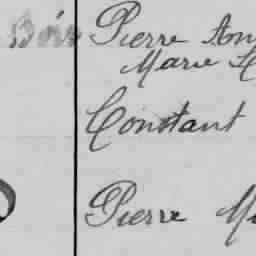 Pierre An
Marie
Constant
Pierre M